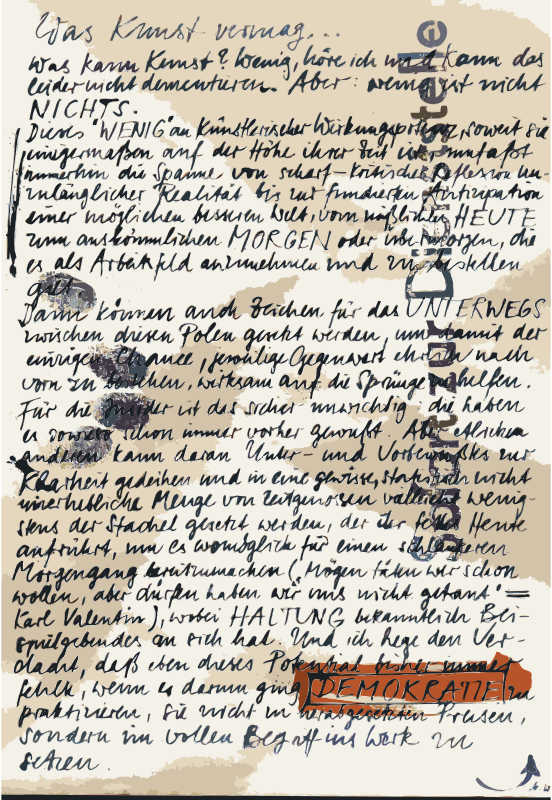 Was Kunst vermag...
Was kann Kunst? Wenig, höre ich und kann das
leider nicht dementieren. Aber: wenig ist nicht
NICHTS.
Dieses "WENIG" an künstlerischer Wirkungspotenz, soweit sie
einigermaßen auf der Höhe ihrer Zeit ist, umfaßt
immerhin die Spanne von scharf-kritischer Reflexion un-
zulänglicher Realität bis zur fundierten Antizipation
einer möglichen besseren Welt, vom mäßlichen HEUTE
zum auskömmlichen MORGEN oder übermorgen, die
es als Arbeitsfeld anzunehmen und zu
gilt.
Dann können auch Zeichen für das UNTERWEGS
zwischen diesen Polen gesetzt werden, um damit der
einzigen Chance, jeweilige Gegenwart ehrlich nach
vorn zu, wirksam auf die Sprünge zu helfen.
Für die Insider ist das sicher unwichtig, die haben
es sowieso schon immer vorher gewußt. Aber etlichen
anderen kann daran Unter- und Vorbewußtes zur
Klarheit gedeihen und in eine gewisse, statistisch nicht
unerhebliche Menge von Zeitgenossen vielleicht wenig-
stens der Stachel gesetzt werden, der Heute
aufrührt, um es womöglich für einen schlaueren
Morgengang bereitzumachen (Mögen täten wir schon
wollen, aber dürfen haben wir uns nicht getraut =
Karl Valentin), wobei HALTUNG bekanntlich Bei-
spielgebendes an sich hat. Und ich hege den Ver-
dacht, daß eben dieses Potential bisher immer
fehlt, wenn es darum ging DEMOKRATIE zu
praktizieren, sie nicht in herabgesetzten Preisen,
sondern im vollen Begriff ins Werk zu
setzen.
Dienststelle
zur